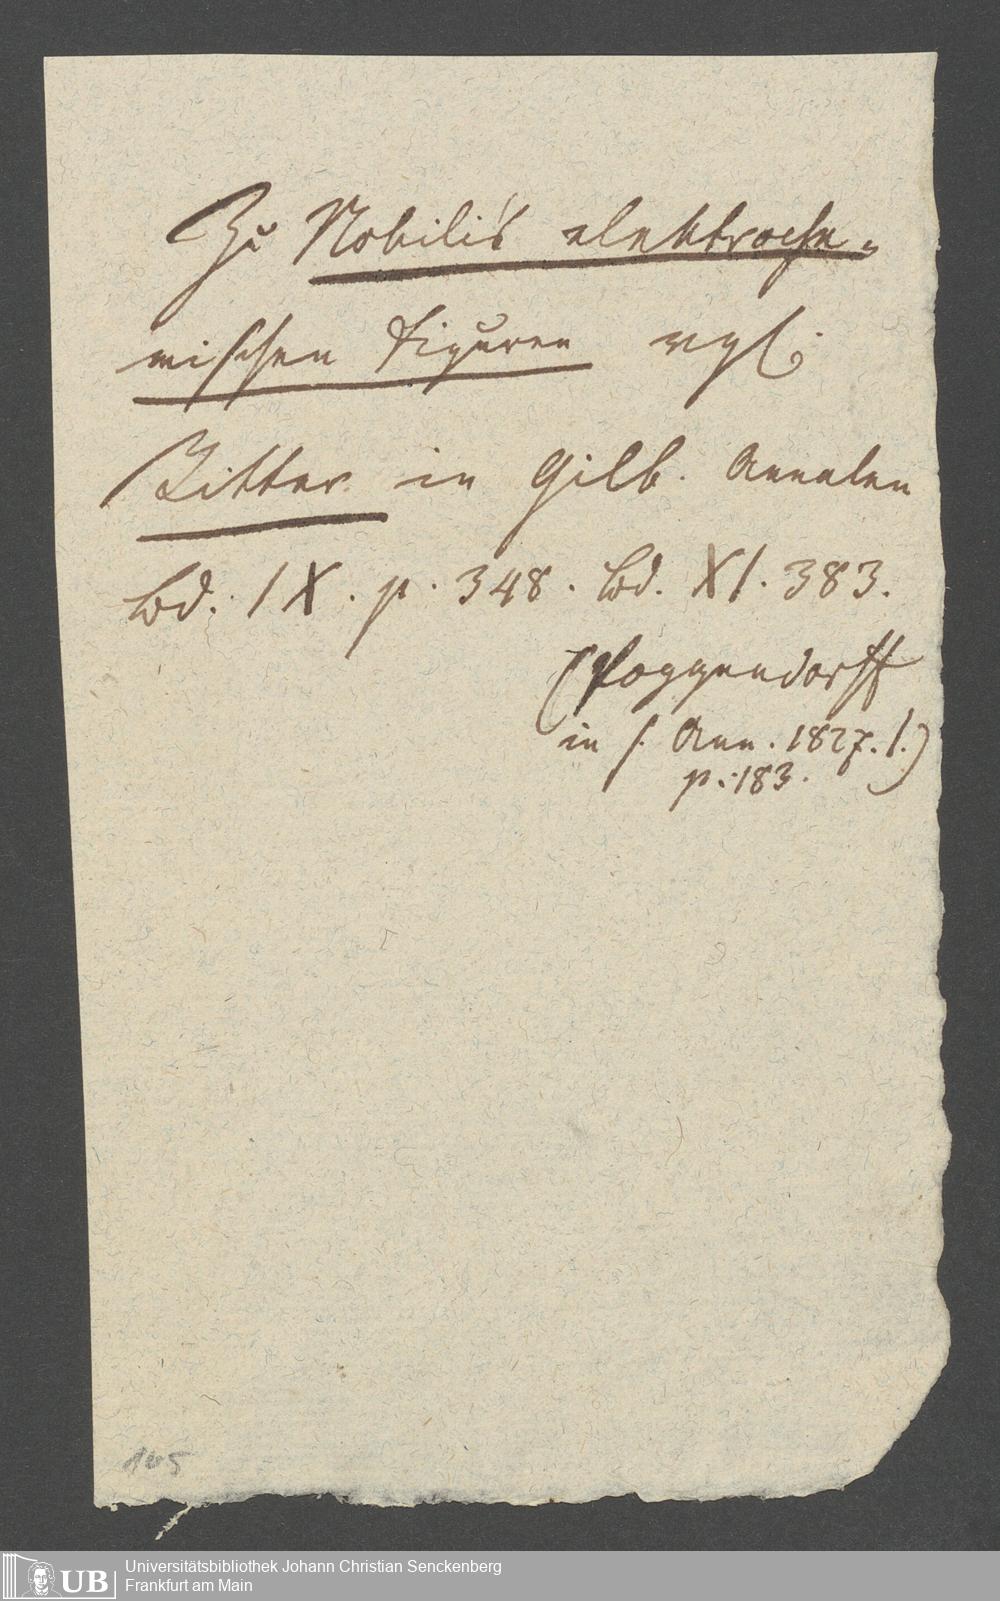 Zu Nobili's elektroche-
mischen Figuren vgl.
Ritter in Gilb. Annalen
Bd. IX. p. 348. Bd. XI. 383.
(Poggendorff
in s. Ann. 1827. I.)
p. 183.
105
UB
Universitätsbibliothek Johann Christian Senckenberg
Frankfurt am Main